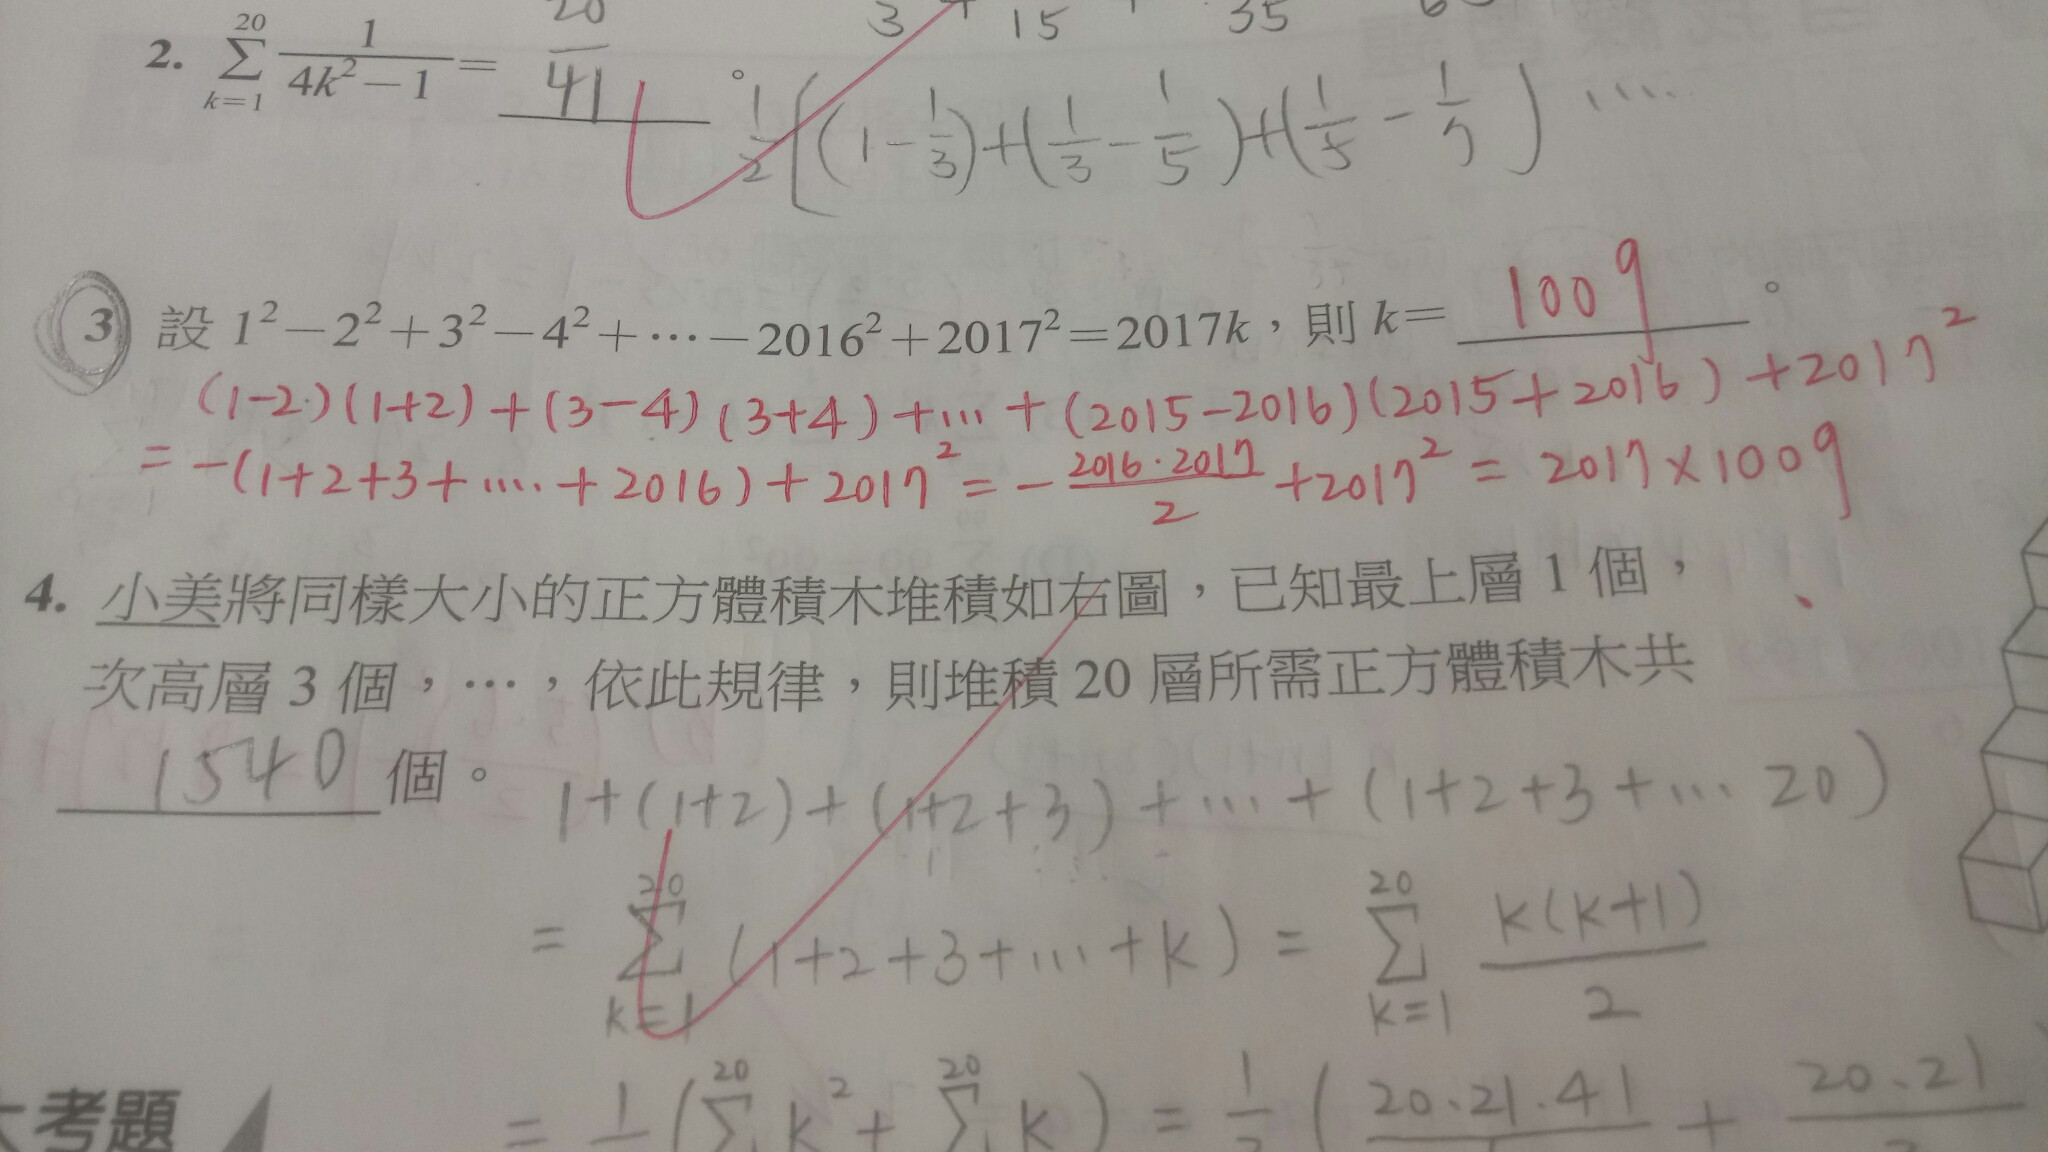 3 + 15 + 35
2. \sum_{k=1}^{20} \frac{1}{4k^2-1} = \frac{20}{41} 。
\frac{1}{2} [ (1-\frac{1}{3})+(\frac{1}{3}-\frac{1}{5})+(\frac{1}{5}-\frac{1}{7}) ....
3 設 1²−2²+3²−4²+⋯−2016²+2017²=2017k,則 k= 1009 。
(1-2)(1+2)+(3-4)(3+4)+...+(2015-2016)(2015+2016)+2017²
= -(1+2+3+....+2016)+2017² = -\frac{2016·2017}{2}+2017² = 2017×1009
4. 小美將同樣大小的正方體積木堆積如右圖,已知最上層 1 個,
次高層 3 個,⋯,依此規律,則堆積 20 層所需正方體積木共
1540 個。
1+(1+2)+(1+2+3)+...+(1+2+3+...20)
= \sum_{k=1}^{20} (1+2+3+...+k) = \sum_{k=1}^{20} \frac{k(k+1)}{2}
考題